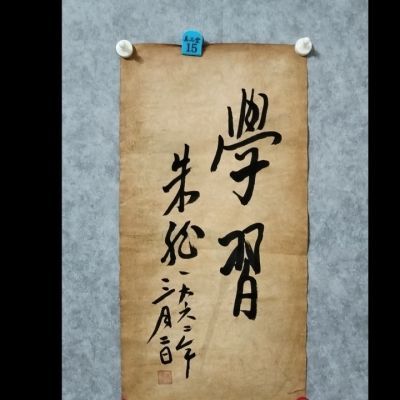 15
學習
朱德一九六二年
三月二日